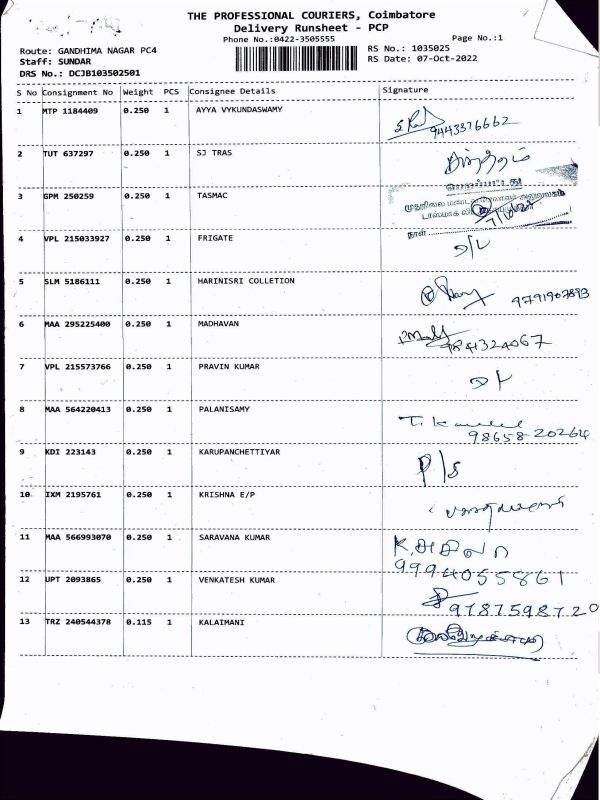 THE PROFESSIONAL COURIERS, Coimbatore
Delivery Runsheet - PCP
Phone No.:0422-3505555 Page No.:1
Route: GANDHIMA NAGAR PC4 RS No.: 1035025
Staff: SUNDAR RS Date: 07-Oct-2022
DRS No.: DCJB103502501
S No Consignment No Weight PCS Consignee Details Signature
1 MTP 1184409 0.250 1 AYYA VYKUNDASWAMY 9443376662
2 TUT 637297 0.250 1 SJ TRAS
3 GPM 250259 0.250 1 TASMAC
நாள்
4 VPL 215033927 0.250 1 FRIGATE
5 SLM 5186111 0.250 1 HARINISRI COLLETION 9791967893
6 MAA 295225400 0.250 1 MADHAVAN 9841324067
7 VPL 215573766 0.250 1 PRAVIN KUMAR
8 MAA 564220413 0.250 1 PALANISAMY
98658 20264
9 KDI 223143 0.250 1 KARUPANCHETTIYAR P/s
10 IXM 2195761 0.250 1 KRISHNA E/P
11 MAA 566993070 0.250 1 SARAVANA KUMAR
9994055861
12 UPT 2093865 0.250 1 VENKATESH KUMAR 9787598720
13 TRZ 240544378 0.115 1 KALAIMANI